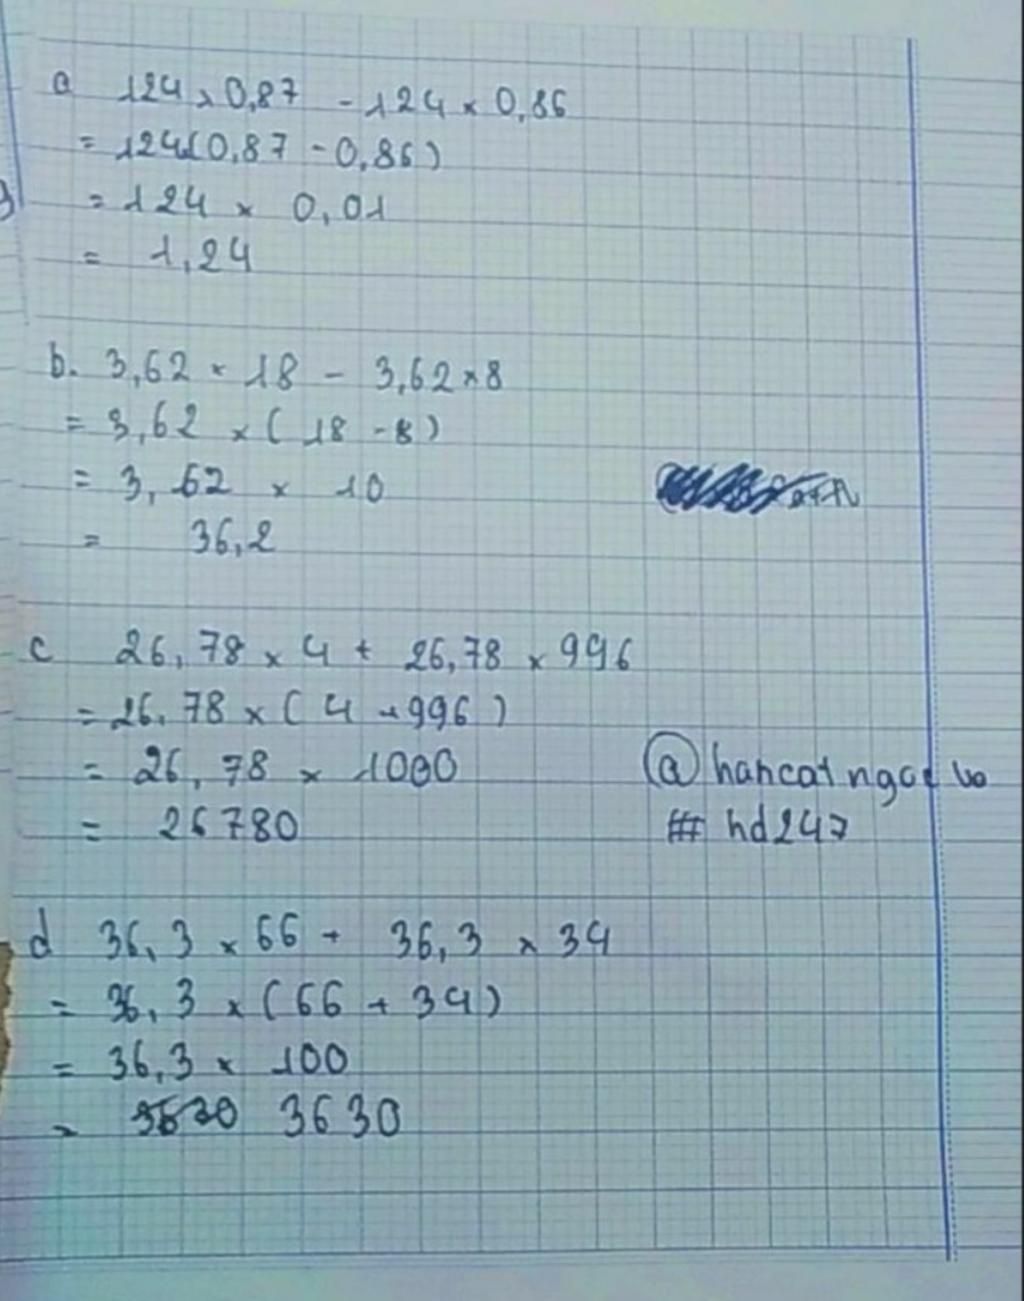 a 124 x 0,87 - 124 x 0,86
= 124x(0,87 - 0,86)
= 124 x 0,01
= 1,24
b. 3,62 x 18 - 3,62 x 8
= 3,62 x ( 18 - 8 )
= 3,62 x 10
= 36,2
c 26,78 x 4 + 26,78 x 996
= 26,78 x ( 4 + 996 )
= 26,78 x 1000
= 26780
@hancat
# hd247
d 36,3 x 66 + 36,3 x 34
= 36,3 x (66 + 34)
= 36,3 x 100
= 3630